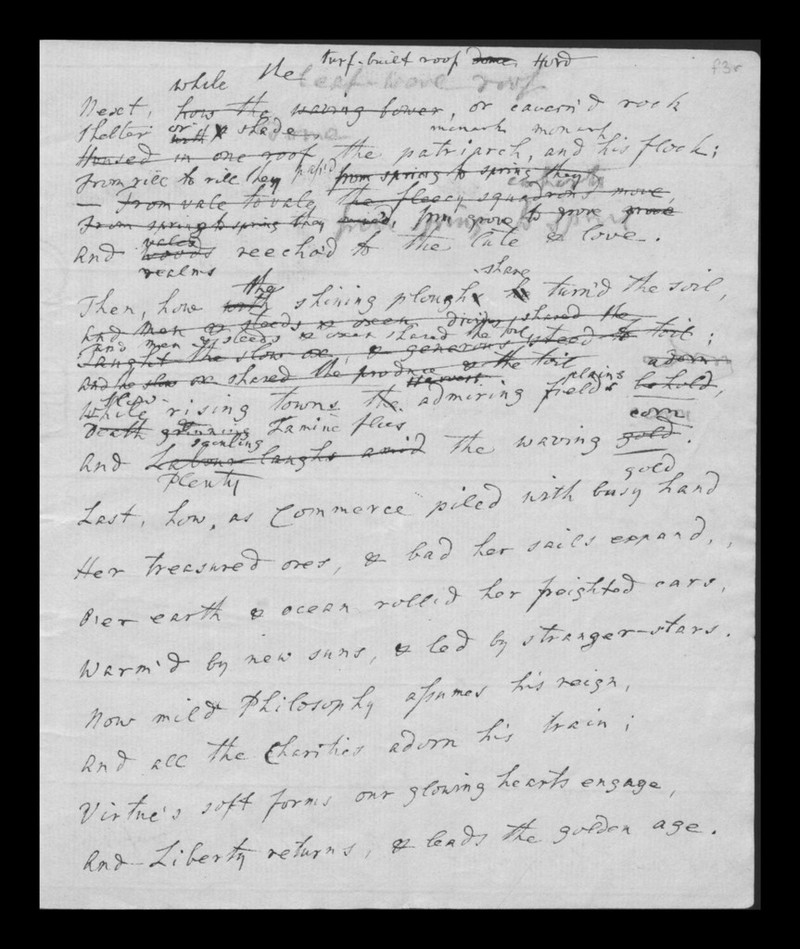 turf-built roof dome, Herd
f3r
while the leaf-wove roof
Next, how the waving bower, or cavern'd rock
Shelter or with & shade monark monark
Housed in one roof the patriarch, and his flock;
From rill to rill they pass'd from spring to spring they
— From vale to vale, the fleecy squadrons move,
From spring to spring they from grove to grove grove
vales
And woods reechoed to the lute & love.
realms
the share
Then, how with shining plough turn'd the soil,
And men & steeds & oxen, shared the
and men & steeds & oxen shared the toil
Taught the slow ox, & generous steed to toil;
And he slow ox shared the produce & the toil adorn
Harvest plains
While rising towns the admiring fields behold,
Death grinning Famine flies corn
squinting
And Labour laughs amid the waving gold.
Plenty gold
Last, how, as Commerce piled with busy hand
Her treasured ores, & bad her sails expand,
O'er earth & ocean roll'd her freighted cars,
Warm'd by new suns, & led by stranger-stars.
Now mild Philosophy assumes his reign,
And all the Charities adorn his train;
Virtue's soft forms our glowing hearts engage,
And Liberty returns, & leads the golden age.